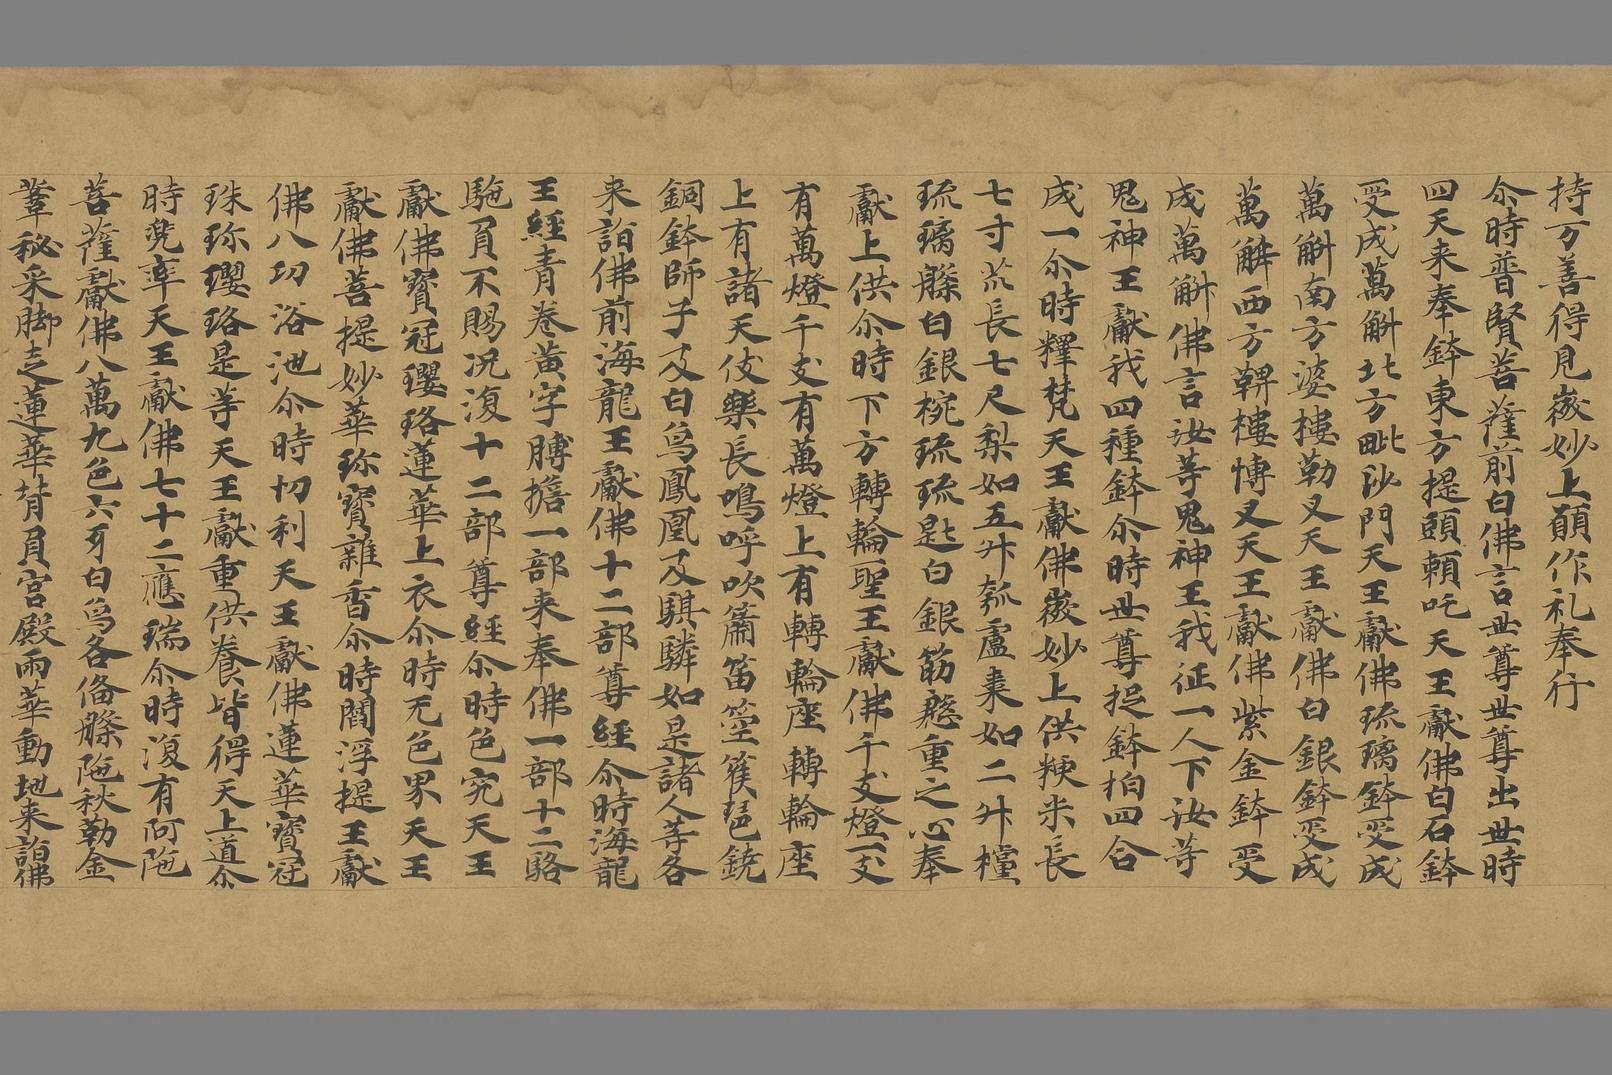 持方善得見微妙上願作礼奉行
尒時普賢菩薩前白佛言世尊世尊出世時
四天来奉鉢東方提頭頼吒天王獻佛白石鉢
受成萬斛北方毗沙門天王獻佛琉璃鉢受成
萬斛南方婆樓勒叉天王獻佛白銀鉢受成
萬斛西方鞞樓愽叉天王獻佛紫金鉢受
成萬斛佛言汝等鬼神王我征一人下汝等
鬼神王獻我四種鉢尒時世尊捉鉢拍四合
成一尒時釋梵天王獻佛微妙上供粳米長
七寸苽長七尺梨如五升瓠盧棗如二升糧
琉璃槃白銀椀琉琉匙白銀筯慇重之心奉
獻上供尒時下方轉輪聖王獻佛千支燈一支
有萬燈千支有萬燈上有轉輪座轉輪座
上有諸天伎樂長鳴呼吹簫笛箜篌琵鐃
銅鉢師子及白鳥鳳凰及騏驎如是諸人等各
来詣佛前海龍王獻佛十二部尊經尒時海龍
王經青卷黄字膊擔一部来奉佛一部十二駱
駞負不賜况復十二部尊經尒時色究天王
獻佛寶冠瓔珞蓮華上衣尒時无色界天王
獻佛菩提妙華珎寶雜香尒時閻浮提王獻
佛八功浴池尒時忉利天王獻佛蓮華寶冠
珠珎瓔珞是等天王獻重供養皆得天上道尒
時兜率天王獻佛七十二應瑞尒時復有阿陁
菩薩獻佛八萬九色六牙白爲各俻槃陁秋勒金
葦秘采脚走蓮華背負宮殿雨華動地来詣佛